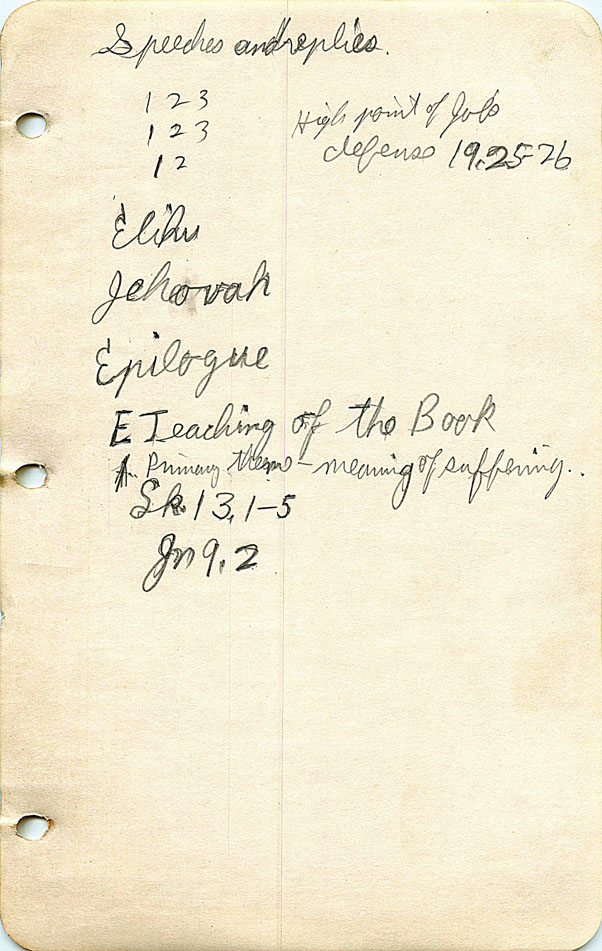 Speeches and replies.
1 2 3
1 2 3
1 2
High point of Job's
defense 19.25-26
Elihu
Jehovah
Epilogue
E Teaching of the Book
A. Primary theme - meaning of suffering..
Lk 13, 1-5
Jn 9, 2